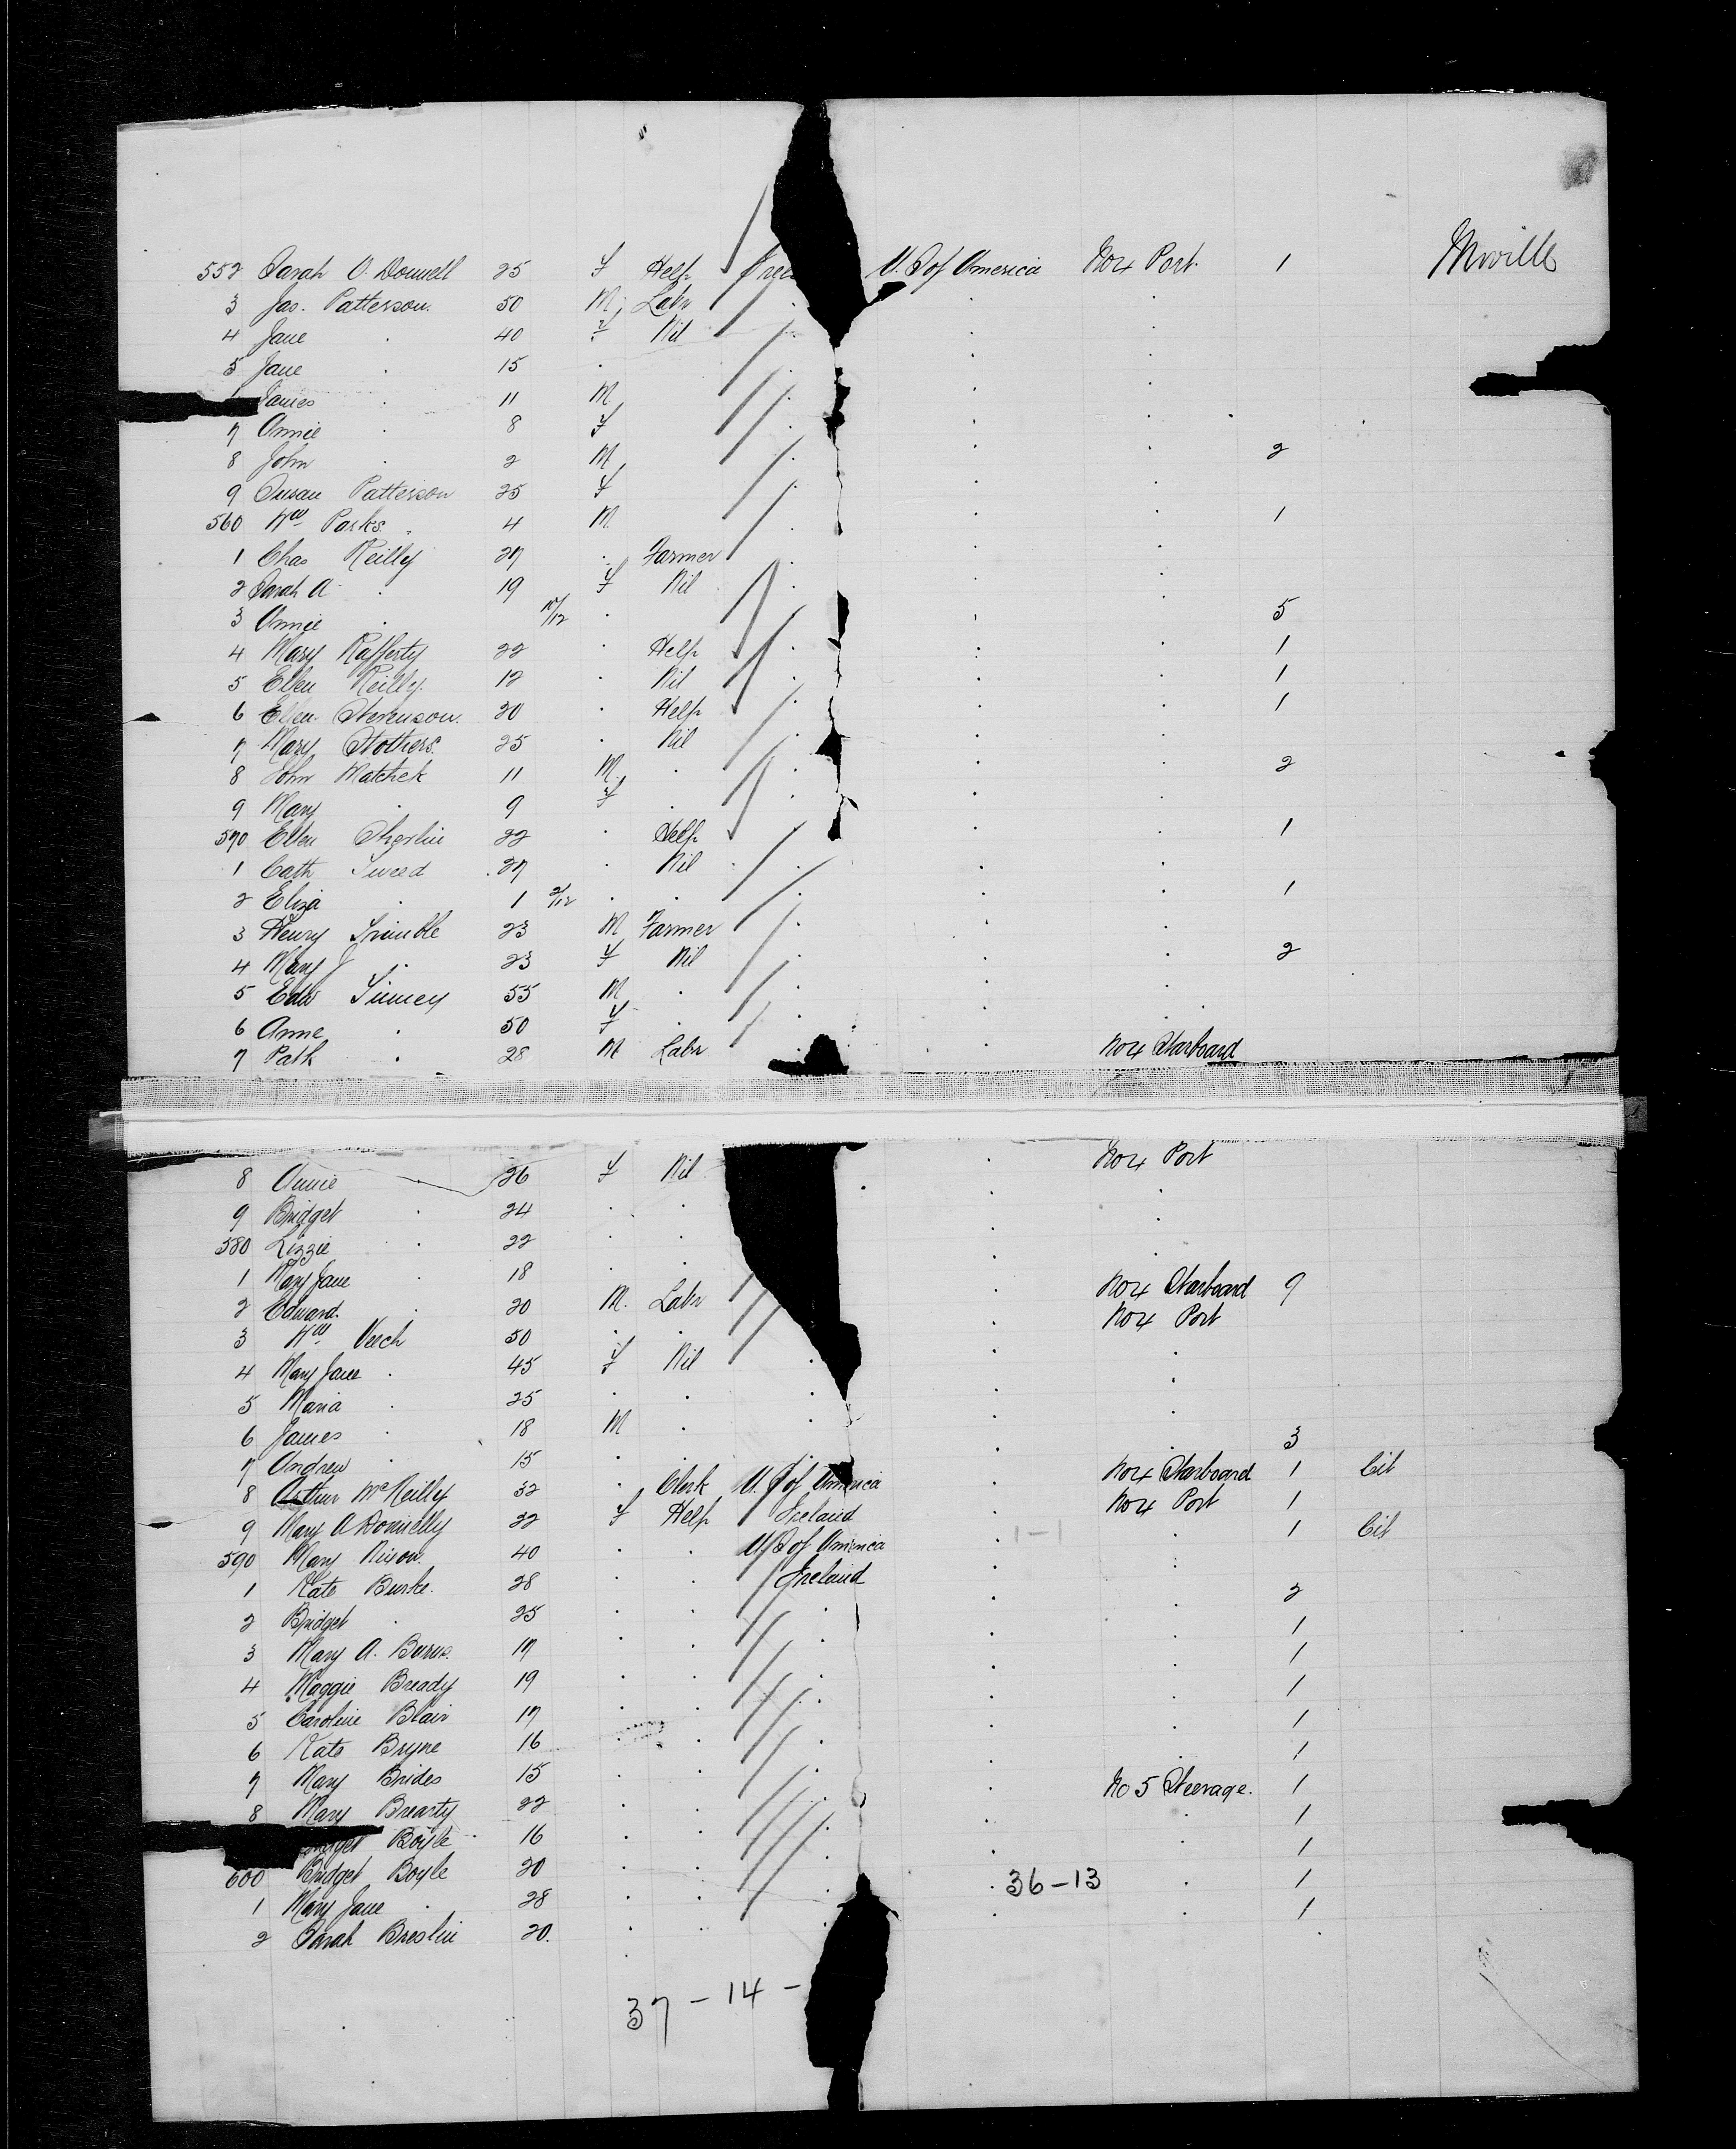 552 Sarah O. Donnell 25 F Help U. S of America No 4 Port. 1 Mville
3 Jas. Patterson. 50 M Labr
4 Jane . 40 F Nil
5 Jane . 15 .
James . 11 M
7 Annie . 8 F
8 John . 2 M 2
9 Susan Patterson 25 F
560 Wm Parks. 4 M 1
1 Chas Reilly 27 . Farmer
2 Sarah A . 19 F Nil
3 Annie . 10/12 . 5
4 Mary Rafferty 22 . Help 1
5 Ellen Reilly. 12 . Nil 1
6 Ellen Stevenson. 20 . Help 1
7 Mary Stothers. 25 . Nil
8 John Matchek 11 M . 2
9 Mary . 9 F .
570 Ellen 22 . Help 1
1 Cath Sweed 27 . Nil
2 Eliza . 1 2/12 . . 1
3 Henry Trimble 23 M Farmer
4 Mary J . 23 F Nil 2
5 Edw Tinney 55 M .
6 Anne . 50 F .
7 Patk . 28 M Labr No 4 Starboard
8 Annie 26 F Nil No 4 Port
9 Bridget . 24 . .
580 Lizzie . 22 . .
1 Mary Jane . 18 . .
2 Edward. . 20 M. Labr No 4 Starboard 9
3 Wm Veech 50 . . No 4 Port
4 Mary Jane . 45 F Nil
5 Maria . 25 . .
6 James . 18 M .
7 Andrew . 15 . . 3
8 Arthur McReilly 32 . Clerk U. S of America No 4 Starboard 1 Cit
9 Mary A Donnelly 32 F Help Ireland No 4 Port 1
590 Mary Nixon. 40 . . U S of America 1-1 1 Cit
1 Kate Burke. 28 . . Ireland
2 Bridget . 25 . . 2
3 Mary A. Burns. 17 . . 1
4 Maggie Bready 19 . . 1
5 Caroline Blair 17 . . 1
6 Kate Bryne 16 . . 1
7 Mary Brides 15 . . 1
8 Mary Brearty 22 . . No 5 Steerage. 1
Boyle 16 . . 1
600 Bridget Boyle 20 . . 1
1 Mary Jane . 28 . . 36-13 1
2 Sarah Breslin 20. . . 1
37-14-